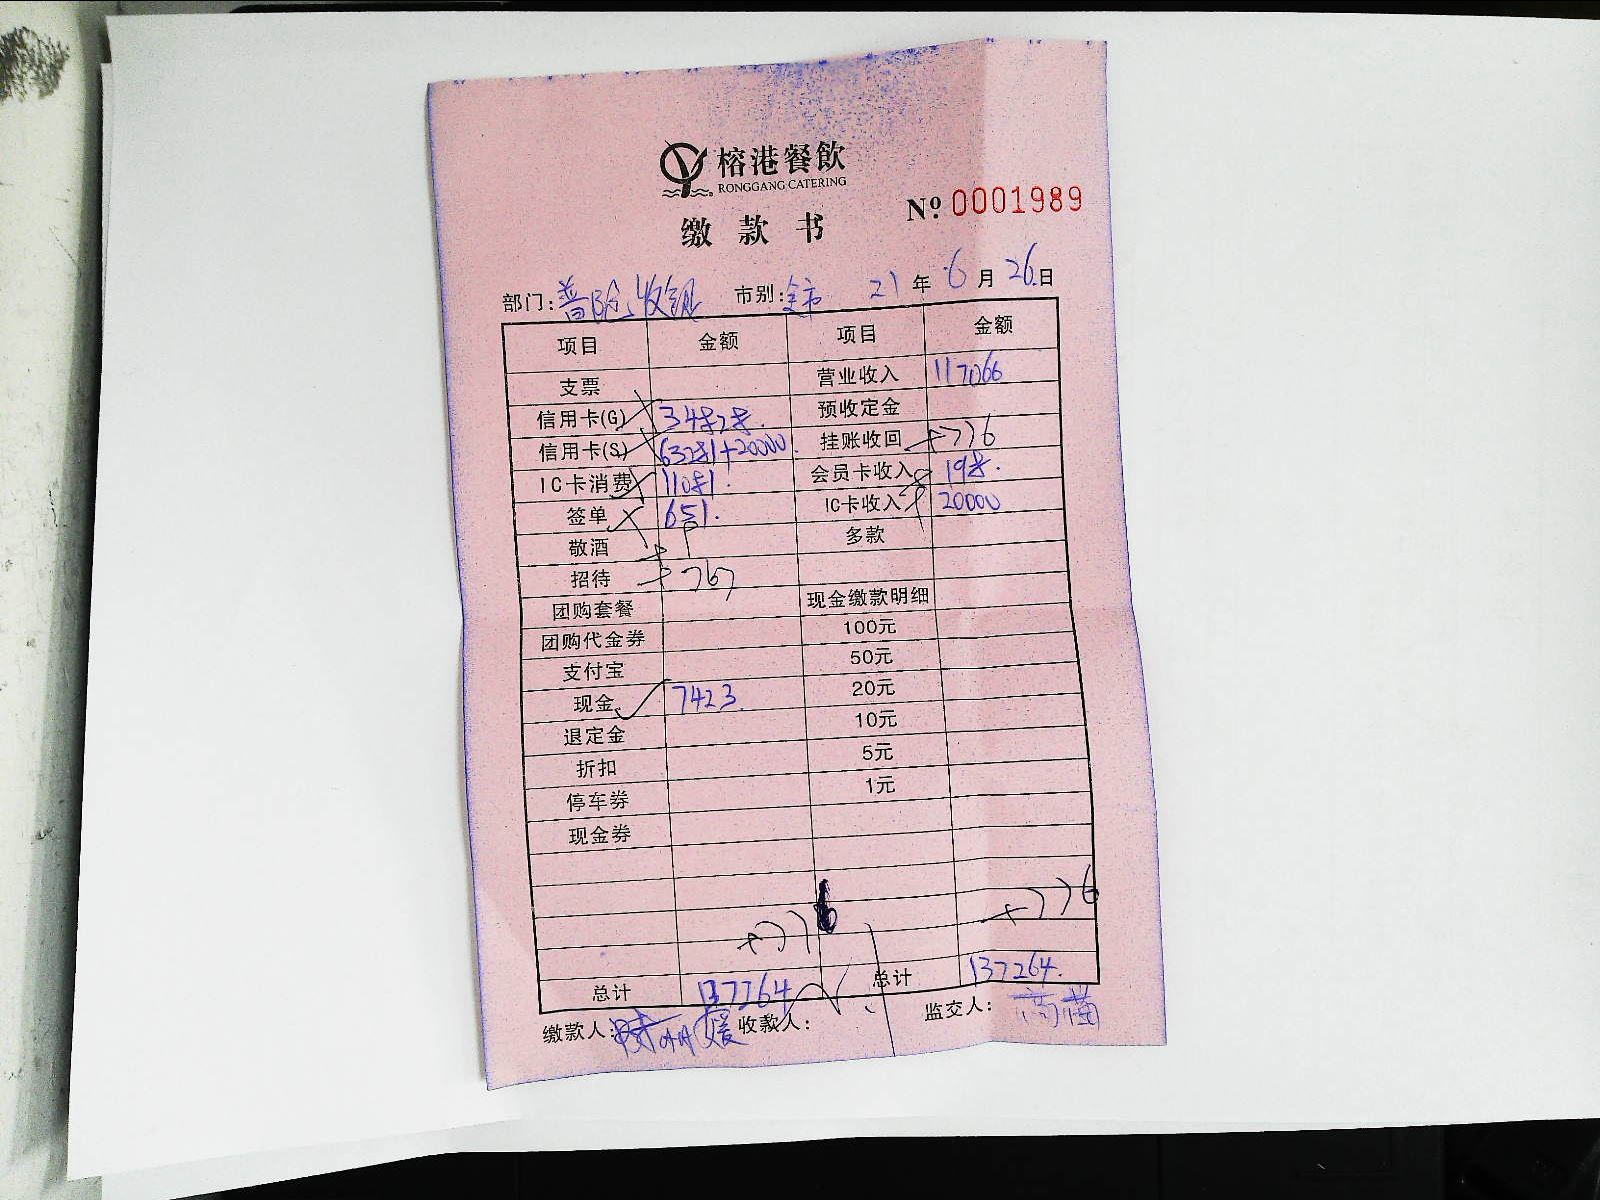 榕港餐飲
RONGGANG CATERING
缴款书 № 0001989
部门: 收银 市别: 全市 21年6月26日
项目 金额 项目 金额
支票 营业收入 117066
信用卡(G) 预收定金
信用卡(S) 挂账收回 +776
IC卡消费 会员卡收入
签单 651. IC卡收入 20000
敬酒 多款
招待 +767
团购套餐 现金缴款明细
团购代金券 100元
支付宝 50元
现金 7423. 20元
退定金 10元
折扣 5元
停车券 1元
现金券
+776 +776
总计 137264 总计 137264.
缴款人: 收款人: 监交人: